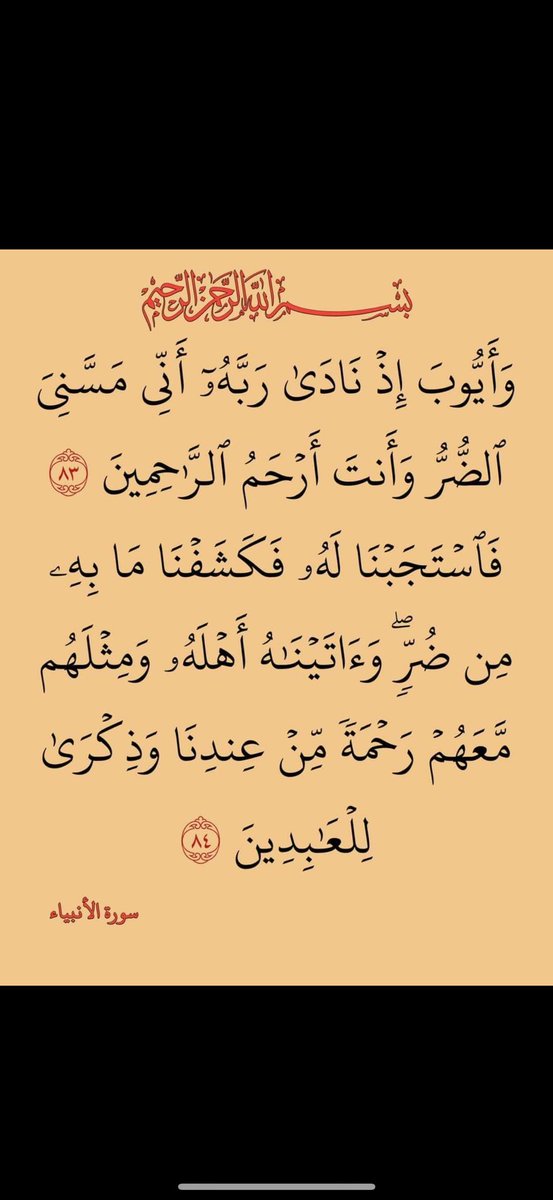 بسم الله الرحمن الرحيم
وَأَيُّوبَ إِذۡ نَادَىٰ رَبَّهُۥٓ أَنِّي مَسَّنِيَ
ٱلضُّرُّ وَأَنتَ أَرۡحَمُ ٱلرَّٰحِمِينَ ٨٣
فَٱسۡتَجَبۡنَا لَهُۥ فَكَشَفۡنَا مَا بِهِۦ
مِن ضُرّٖۖ وَءَاتَيۡنَٰهُ أَهۡلَهُۥ وَمِثۡلَهُم
مَّعَهُمۡ رَحۡمَةٗ مِّنۡ عِندِنَا وَذِكۡرَىٰ
لِلۡعَٰبِدِينَ ٨٤
سورة الأنبياء